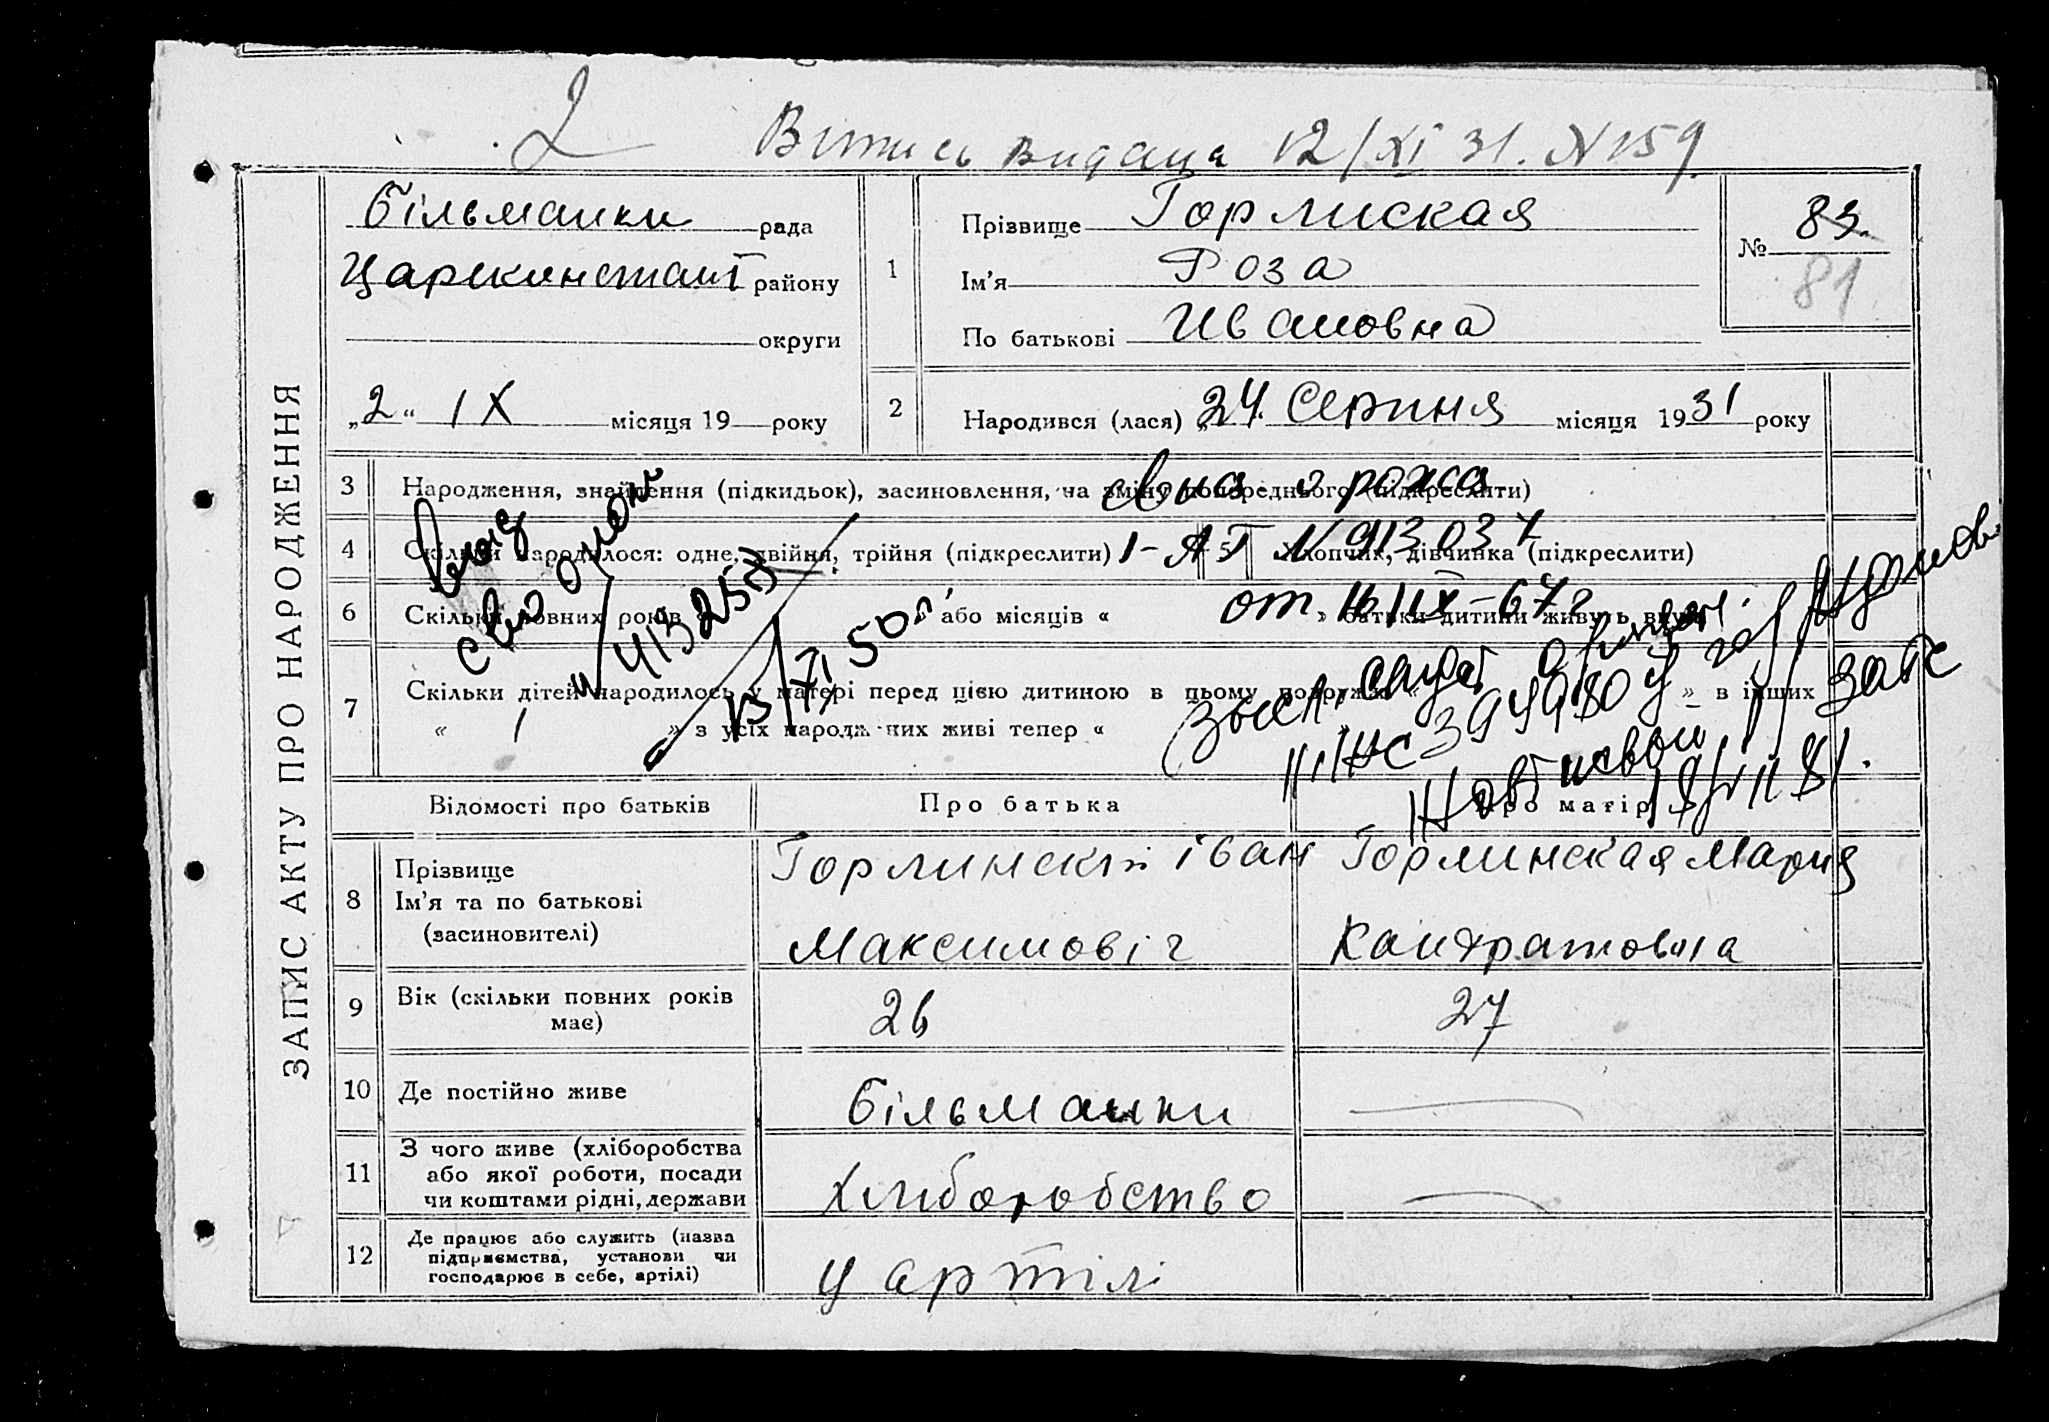 2
Витись видаца 12/XI 31. N 159
ЗАПИС АКТУ ПРО НАРОДЖЕННЯ
Більманки рада
Царекинстант району
округи
„2“ IX місяця 19 року
1
Прізвище Горлиская
Ім'я Роза
По батькові Ивановна
№ 83.
81
2
Народився (лася) „24. Серпня місяця 1931 року
3 Народження, знайдення (підкидьок), засиновлення, на зміну попереднього (підкреслити)
4 Скільки народилося: одне, двійня, трійня (підкреслити) 5 Хлопчик, дівчинка (підкреслити)
I-АП N 913037
6 Скільки повних років або місяців « » батьки дитини живуть вкупі
от 16/IX-67г
7 Скільки дітей народилось у матері перед цією дитиною в цьому подружжі « » в інших
« 1 » з усіх народжених живі тепер «
413255
50
Відомості про батьків
Про батька
Про матір
8
Прізвище
Ім'я та по батькові
(засиновителі)
Горлинскій Іван
Максимовіч
Горлинская Мария
Кандратовна
9
Вік (скільки повних років
має)
26
27
10 Де постійно живе
Більманки
11
З чого живе (хліборобства
або якої роботи, посади
чи коштами рідні, держави
Хлиборобство
12
Де працює або служить (назва
підприємства, установи чи
господарює в себе, артілі)
у артілі